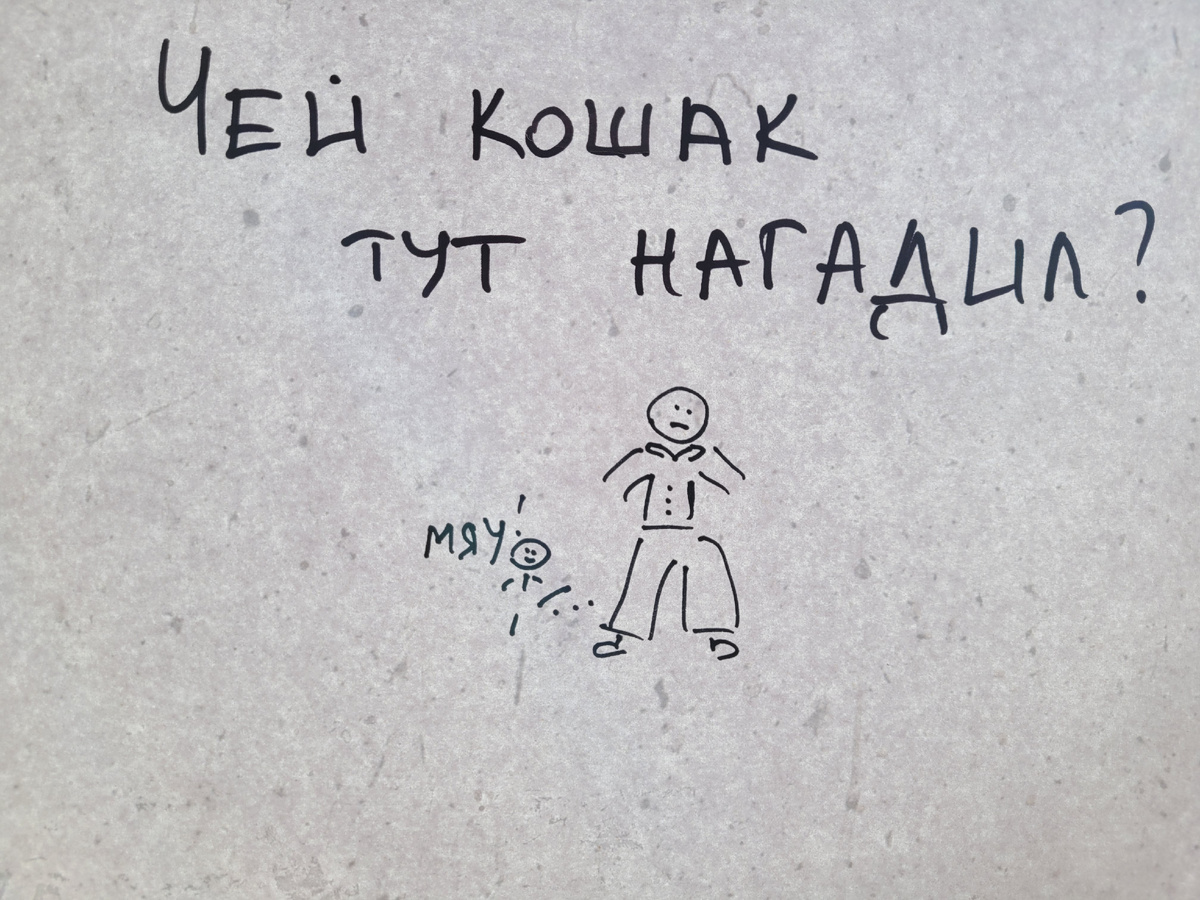 ЧЕЙ КОШАК
ТУТ НАГАДИЛ?
МЯУ